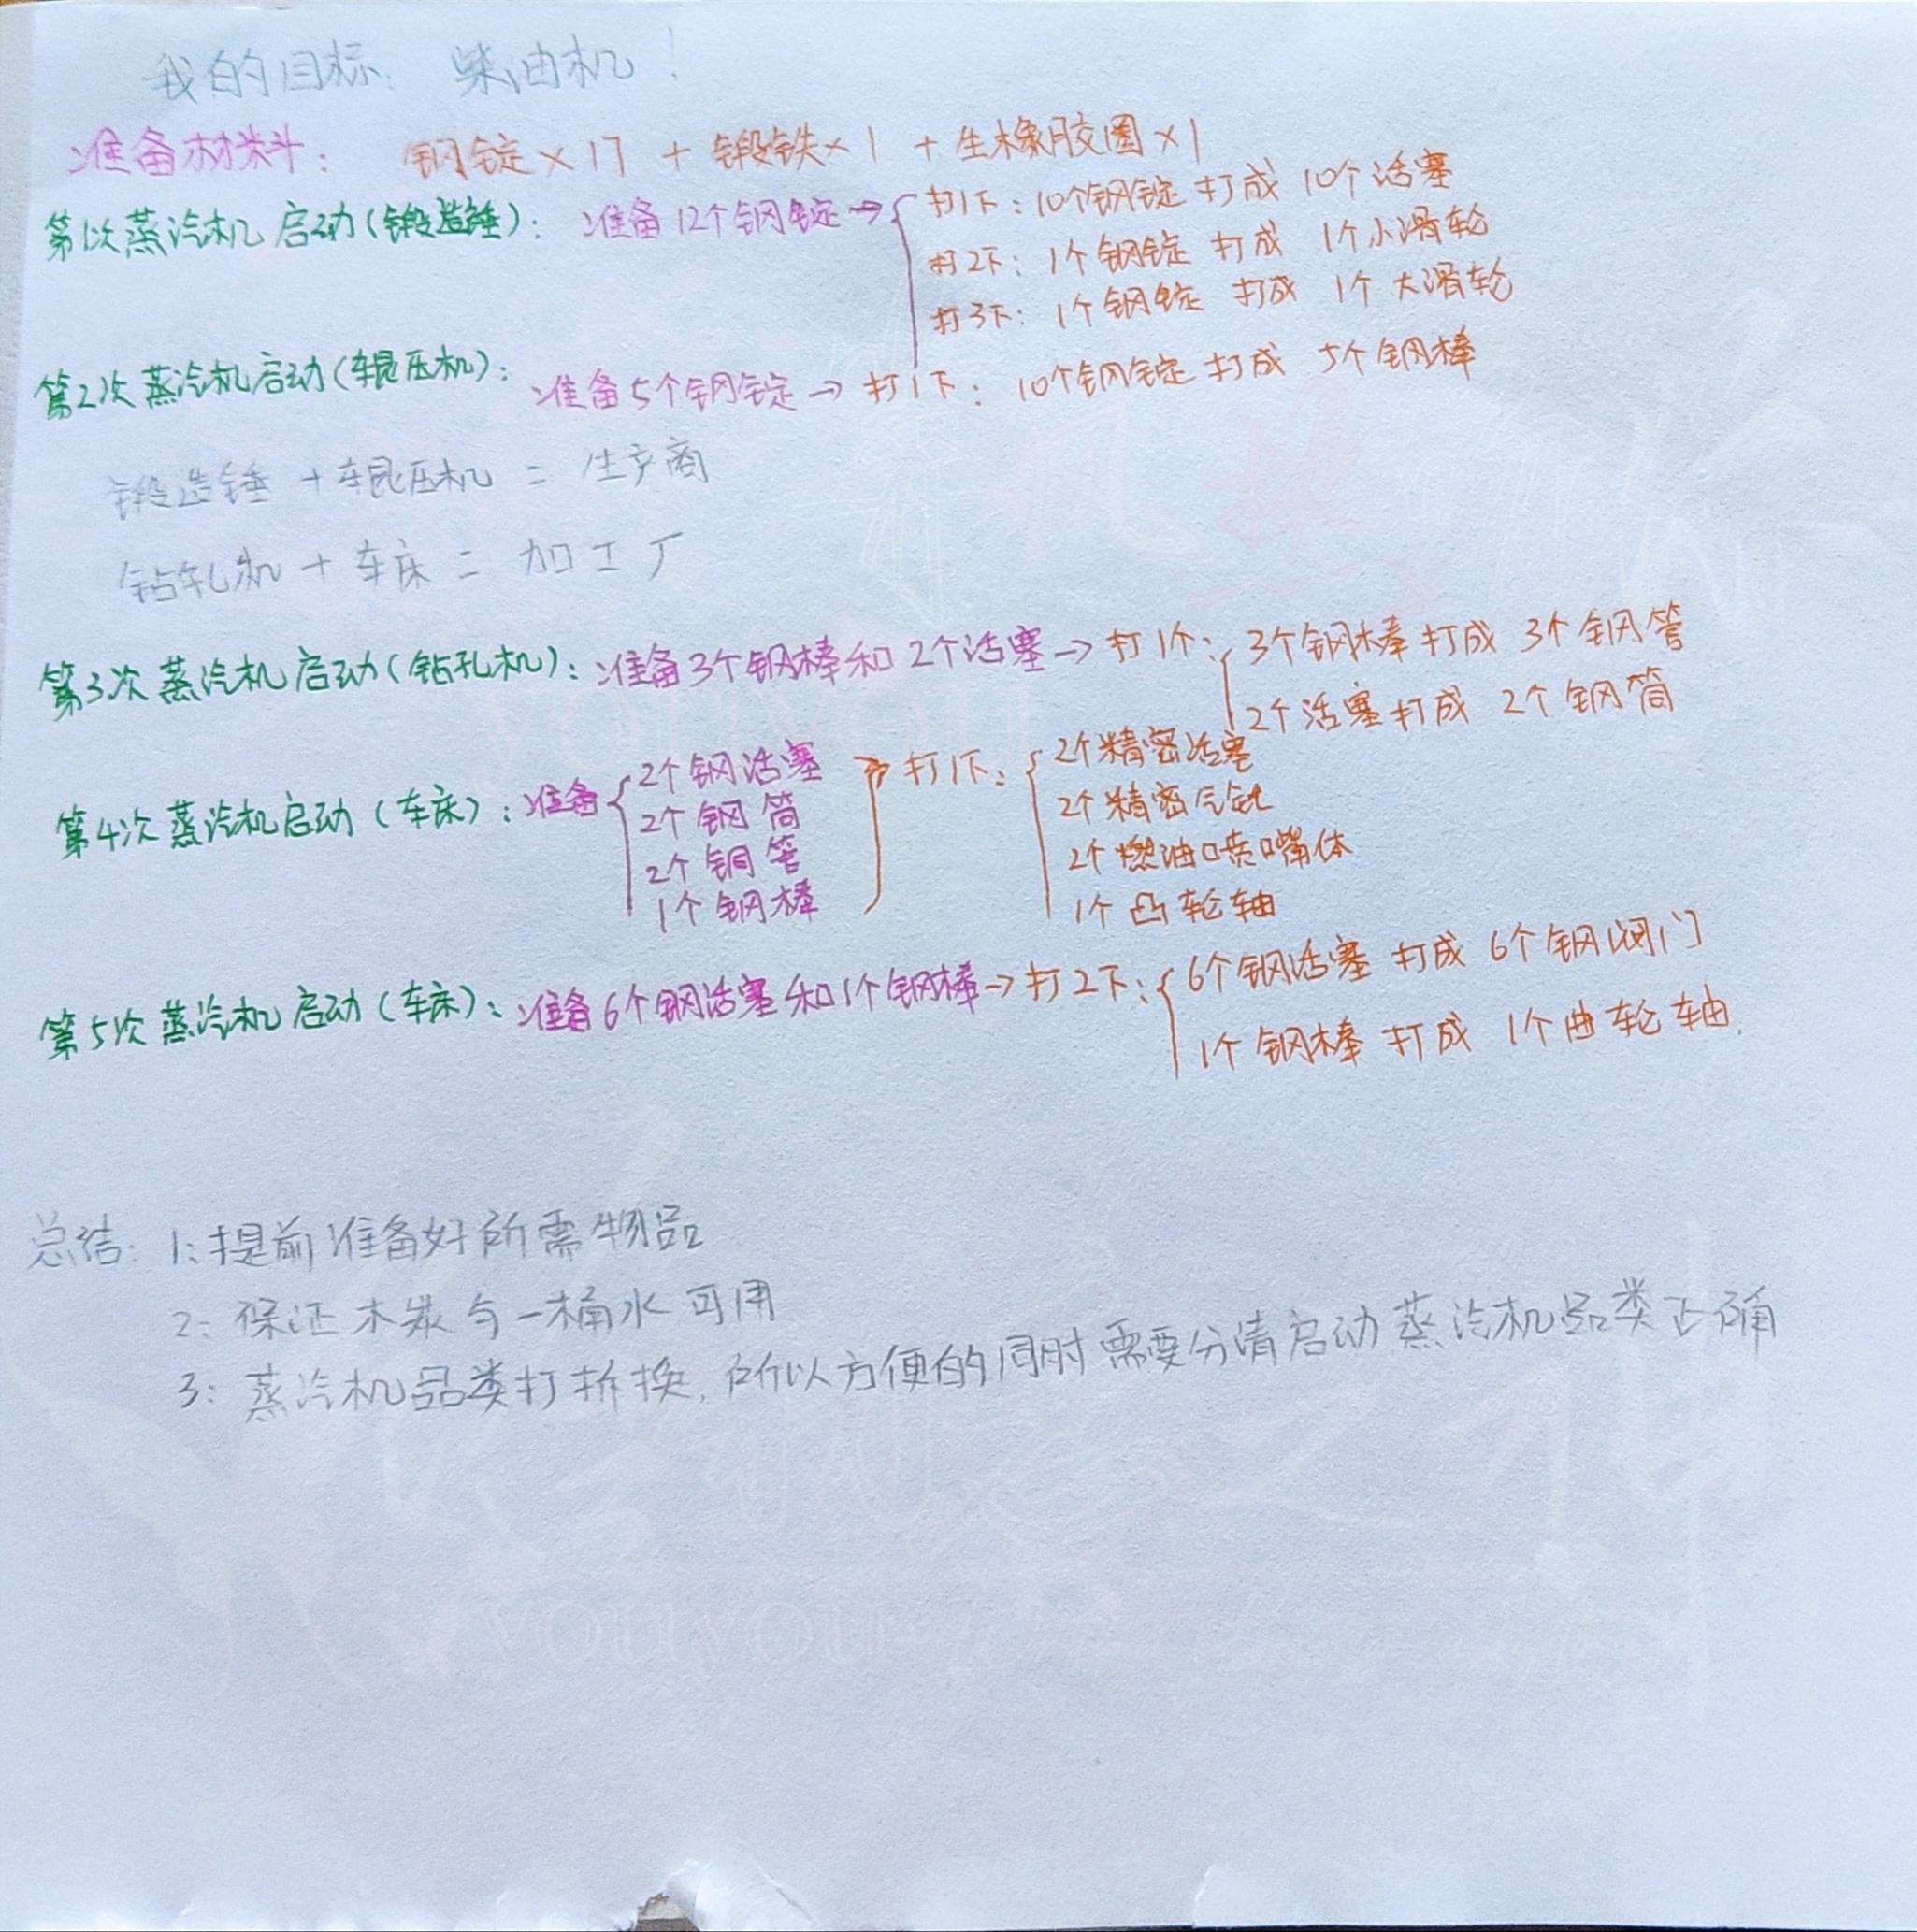 我的目标: 柴油机!
准备材料: 钢锭×17 + 锻铁×1 + 生橡胶圈×1
第1次蒸汽机启动(锻造锤): 准备12个钢锭→ 打1下: 10个钢锭 打成 10个活塞
打2下: 1个钢锭 打成 1个小滑轮
打3下: 1个钢锭 打成 1个大滑轮
第2次蒸汽机启动(辊压机): 准备5个钢锭→ 打1下: 10个钢锭 打成 5个钢棒
锻造锤 + 辊压机 = 生产商
钻轧机 + 车床 = 加工厂
第3次蒸汽机启动(钻孔机): 准备3个钢棒和2个活塞→ 打1个: 3个钢棒打成 3个钢管
2个活塞打成 2个钢筒
第4次蒸汽机启动(车床): 准备 2个钢活塞 打1下: 2个精密活塞
2个钢筒 2个精密气缸
2个铜管 2个燃油喷嘴体
1个钢棒 1个凸轮轴
第5次蒸汽机启动(车床): 准备6个钢活塞和1个钢棒→打2下: 6个钢活塞 打成 6个钢阀门
1个钢棒 打成 1个曲轮轴.
总结: 1: 提前准备好所需物品
2: 保证木炭与一桶水可用
3: 蒸汽机品类打拆换, 所以方便的同时需要分清启动蒸汽机品类正确